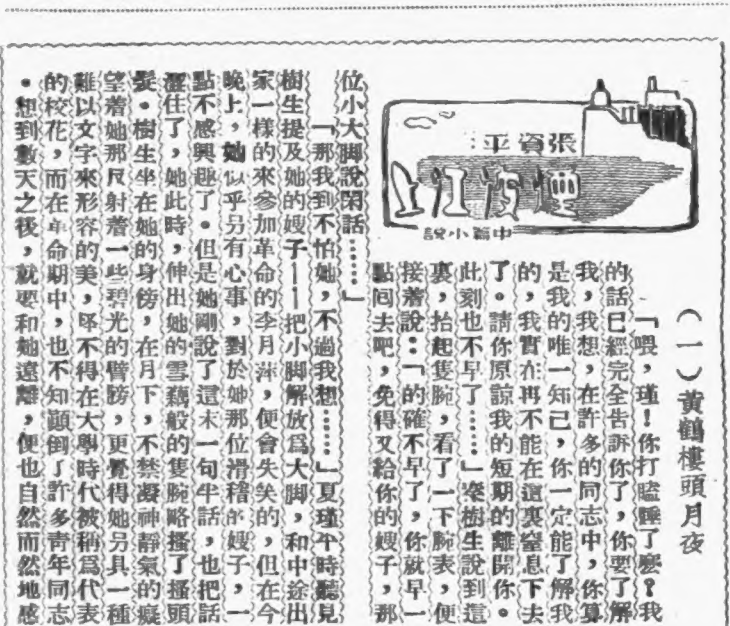 張資平:
煙波江上
中篇小說
（一）黃鶴樓頭月夜
「喂，瑾！你打瞌睡了麼？我
的話已經完全告訴你了，你要了解
我，我想，在許多的同志中，你算
是我的唯一知己，你一定能了解我
的，我實在再不能在這裏窒息下去
了。請你原諒我的短期的離開你。
此刻也不早了……」樹生說到這
裏，抬起隻腕，看了一下腕表，便
接着說：「的確不早了，你就早一
點囘去吧，免得又給你的嫂子，那
位小大脚說閑話……」
「那我到不怕她，不過我想……」夏瑾平時聽見
樹生提及她的嫂子——把小脚解放爲大脚，和中途出
家一樣的來參加革命的李月萍，便會失笑的，但在今
晚上，她似乎另有心事，對於她那位滑稽的嫂子，一
點不感興趣了。但是她剛說了這末一句半話，也把話
住了，她此時，伸出她的雪藕般的隻腕略搔了搔頭
髮。樹生坐在她的身傍，在月下，不禁凝神靜氣的癡
望着她那反射着一些碧光的臂膀，更覺得她另具一種
難以文字來形容的美，怪不得在大學時代被稱爲代表
的校花，而在革命期中，也不知顚倒了許多青年同志
。想到數天之後，就要和她遠離，便也自然而然地感